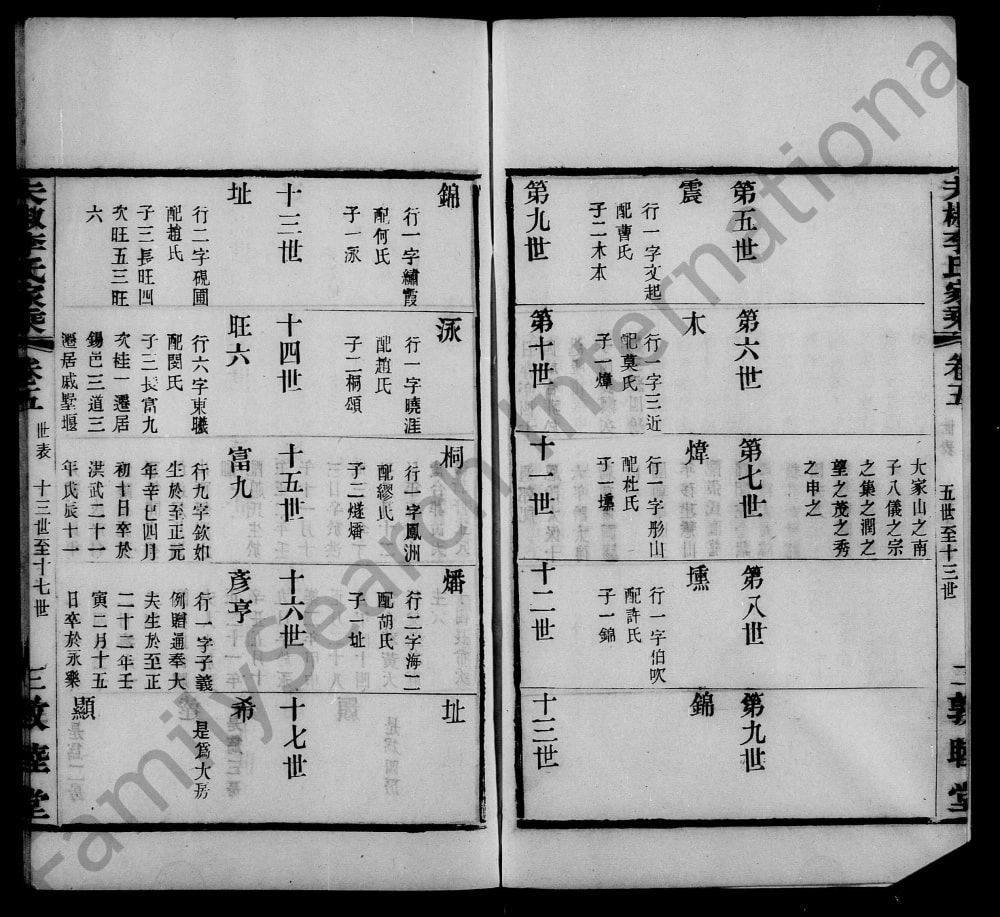 夫椒李氏家乘 卷五 世表 五世至十三世 二 敦睦堂
大家山之南
子八儀之宗
之集之潤之
望之茂之秀
之申之
第五世
震
行一字文起
配曹氏
子二木本
第九世
第六世
木
行一字三近
配莫氏
子一煒
第十世
第七世
煒
行一字彤山
配杜氏
子一壎
十一世
第八世
壎
行一字伯吹
配許氏
子一錦
十二世
第九世
錦
十三世
錦
行一字繡霞
配何氏
子一泳
十三世
址
行二字硯圃
配趙氏
子三長旺四
次旺五三旺
六
泳
行一字曉涯
配趙氏
子二桐頌
十四世
旺六
行六字東曦
配閔氏
子三長富九
次桂一遷居
錫邑三道三
遷居戚墅堰
桐
行一字鳳洲
配繆氏
子二燧燔
十五世
富九
行九字欽如
生於至正元
年辛巳四月
初十日卒於
洪武二十一
年戊辰十一
燔
行二字海二
配胡氏
子一址
十六世
彥亨
行一字子義
例贈通奉大
夫生於至正
二十二年壬
寅二月十五
日卒於永樂
址
十七世
希
是爲大房
顯
夫椒李氏家乘 卷五 世表 十三世至十七世 三 敦睦堂
FamilySearch International